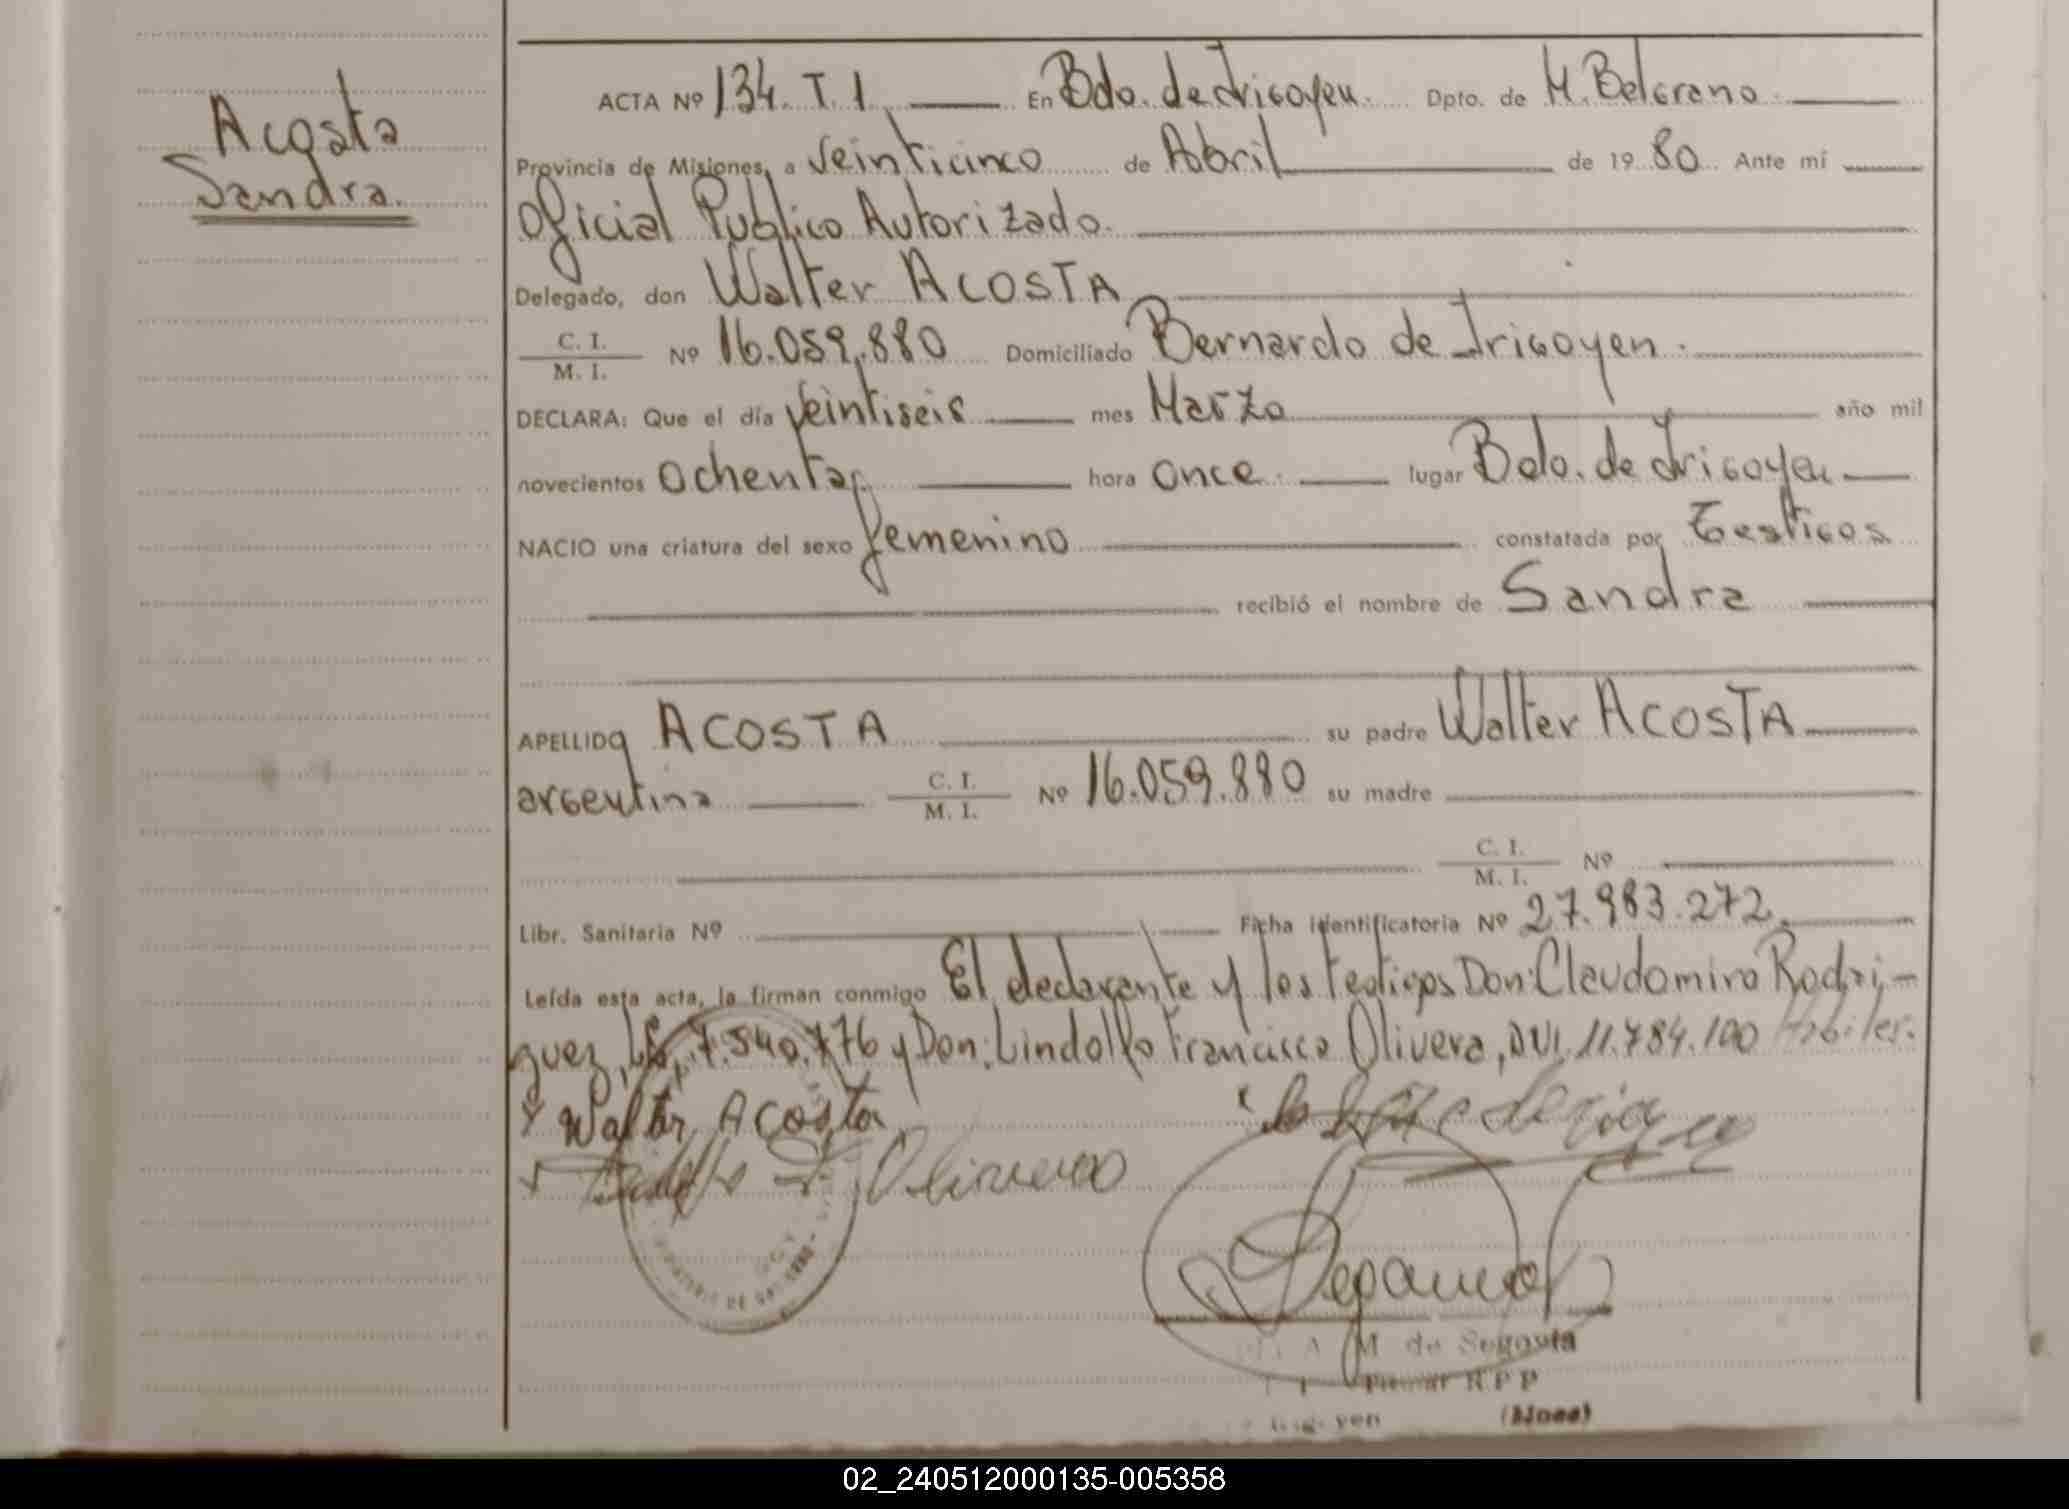 Acosta
Sandra.
ACTA Nº 134. T. 1 En Bdo. de Irigoyen. Dpto. de M. Belgrano.
Provincia de Misiones, a Veinticinco de Abril de 1980 Ante mí
Oficial Publico Autorizado.
Delegado, don Walter ACOSTA
C. I.
M. I. Nº 16.059.880 Domiciliado Bernardo de Irigoyen.
DECLARA: Que el día Veintiseis mes Marzo año mil
novecientos ochenta, hora once. lugar Bdo. de Irigoyen
NACIO una criatura del sexo femenino constatada por Testigos
recibió el nombre de Sandra
APELLIDO ACOSTA su padre Walter ACOSTA
argentina C. I.
M. I. Nº 16.059.880 su madre
C. I.
M. I. Nº
Libr. Sanitaria Nº Ficha identificatoria Nº 27.983.272.
Leída esta acta, la firman conmigo El declarante y los testigos Don: Claudomiro Rodri-
guez, 7.540.776 y Don: Lindolfo Francisco Olivera, DNI. 11.784.100 Habiles.
Walter Acosta
Olivera
M de Segovia
R P P
(Mnes)
02_240512000135-005358